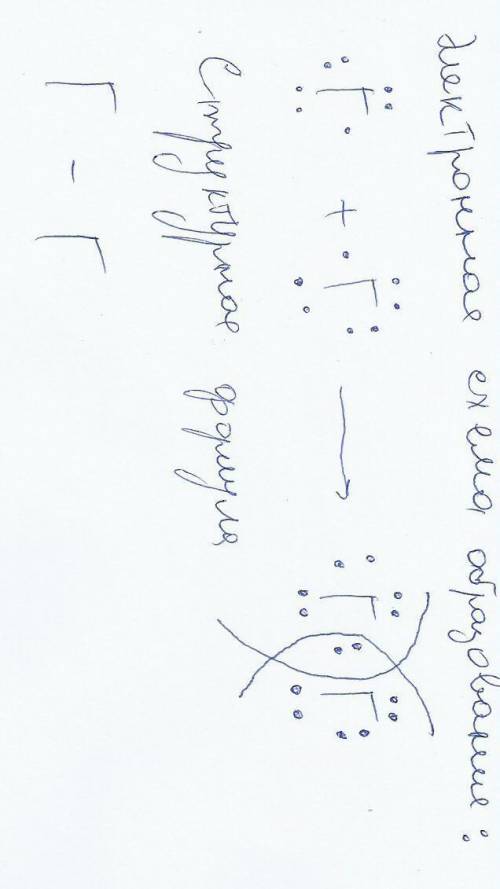 Электронная схема образования:
Г + Г → Г Г
Структурная формула
Г - Г